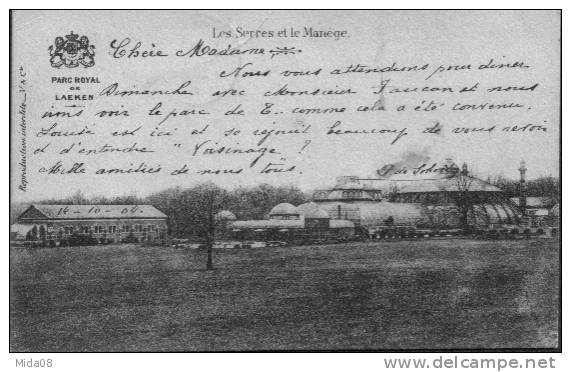 Les Serres et le Manège.
Chère Madame
PARC ROYAL
DE
LAEKEN
Nous vous attendons pour dîner
Dimanche avec Monsieur Faucon et nous
irons voir le parc de T.. comme cela a été convenu.
Louise est ici et se réjouit beaucoup de vous revoir
et d'entendre "Voisinage"?
Mille amitiés de nous tous.
P. de
14-10-04
Reproduction interdite
Mida08
www.delcampe.net